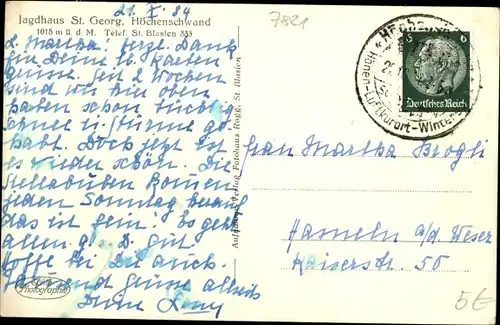 Jagdhaus St. Georg, Höchenschwand
1015 m ü. d. M. Telef. St. Blasien 333
21. X. 34
L. Martha! Herzl. Dank
für Deine lb. Karten
grüsse. Seit 2 Wochen
sind wir hier oben
haben schon tüchtig
Schnee u. Stürme ge
habt. Doch jetzt ist
es wieder schön. Die
Stellabuben kommen
jeden Sonntag herauf
das ist fein! Es geht
allen g. s. D. gut
hoffe bei Dir auch.
Tausend Grüsse allseits
Deine
Echte Photographie
Verlag Fotohaus St. Blasien
7821
Höchenschwand
Höhen-Luftkurort-Winter
6 6
Deutsches Reich
Frau Martha Brogli
Hameln a/d. Weser
Kaiserstr. 50
5€